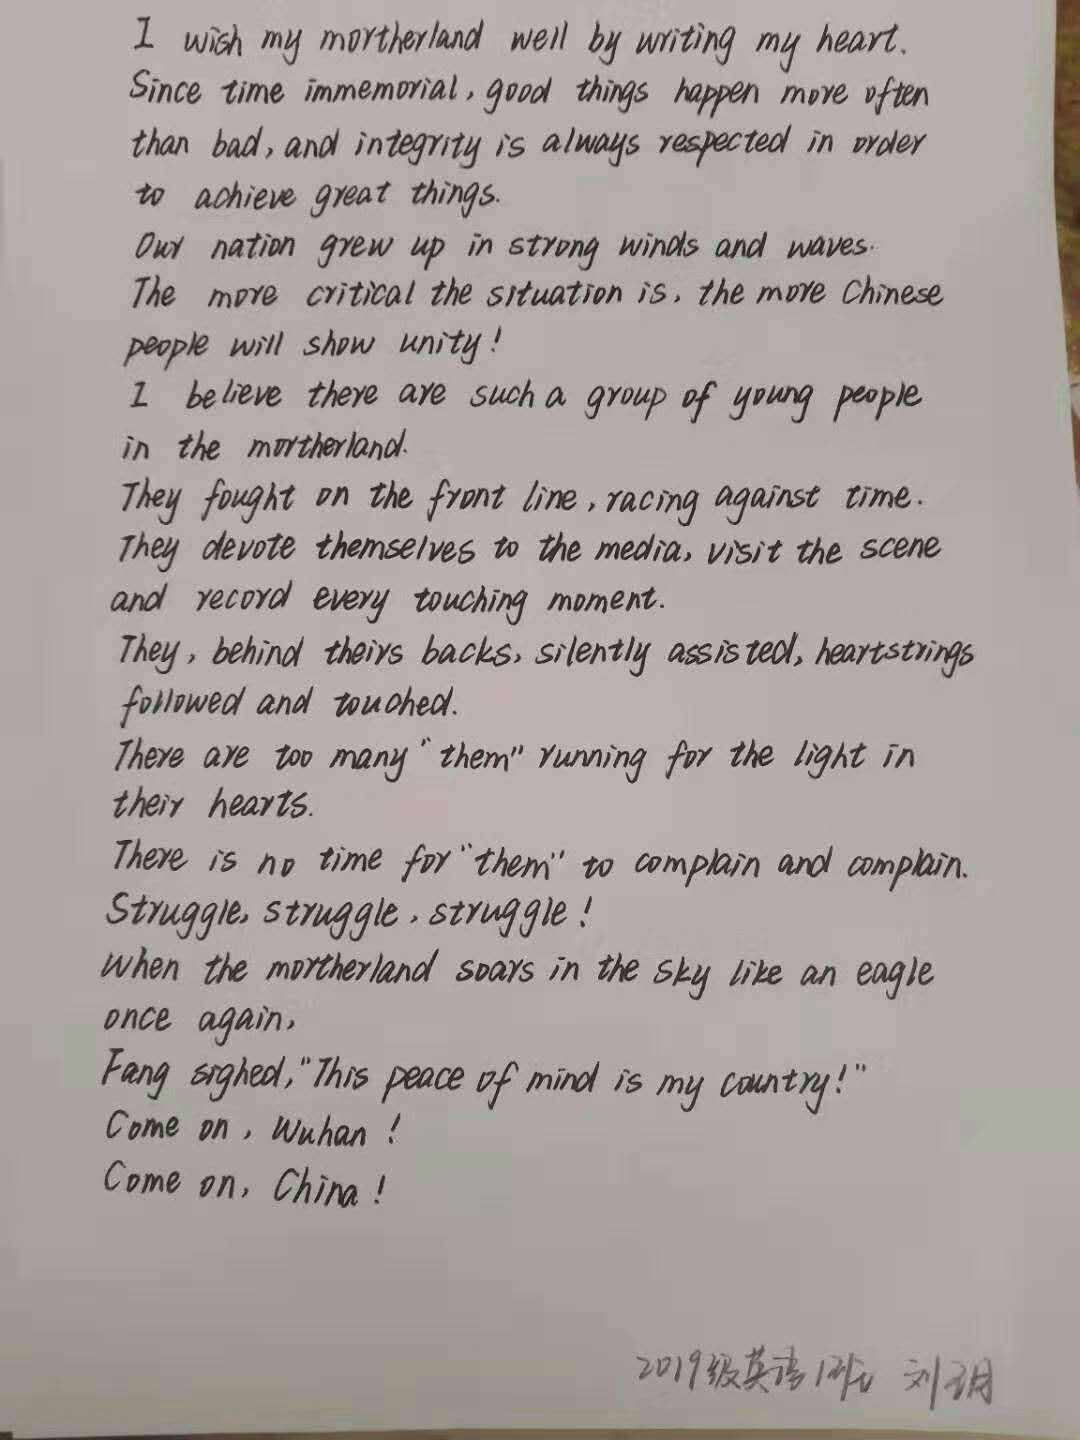 I wish my mortherland well by writing my heart.
Since time immemorial, good things happen more often
than bad, and integrity is always respected in order
to achieve great things.
Our nation grew up in strong winds and waves.
The more critical the situation is, the more Chinese
people will show unity!
I believe there are such a group of young people
in the mortherland.
They fought on the front line, racing against time.
They devote themselves to the media, visit the scene
and record every touching moment.
They, behind theirs backs, silently assisted, heartstrings
followed and touched.
There are too many "them" running for the light in
their hearts.
There is no time for "them" to complain and complain.
Struggle, struggle, struggle!
When the mortherland soars in the sky like an eagle
once again,
Fang sighed, "This peace of mind is my country!"
Come on, Wuhan!
Come on, China!
2019级英语1班 刘玥